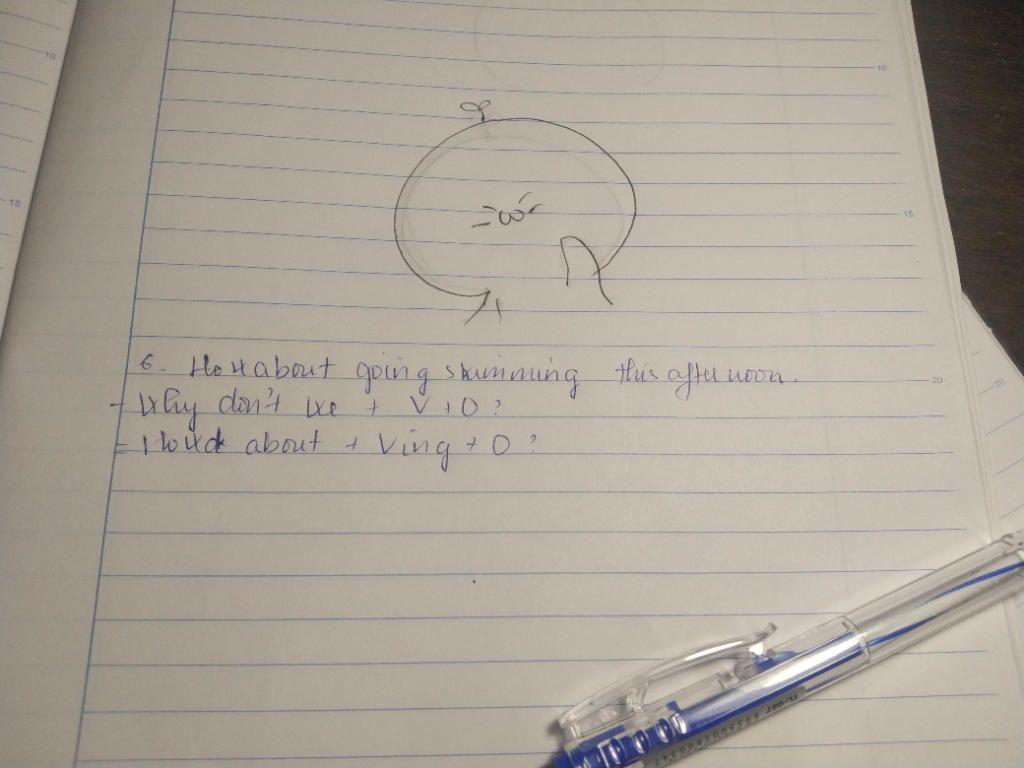 10
10
15
15
6. How about going swimming this afternoon.
20
20
- Why don't we + V + O?
= How about + Ving + O?
TL-027